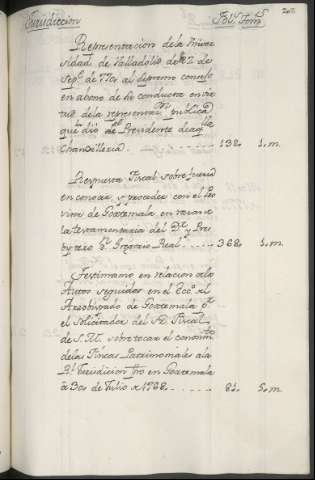 Jurisdiccion Fol.s Tom.s
Representacion de la Univer
sidad de Valladolid de 12 de
Sep.e de 770 al Supremo Consejo
en abono de la conducta entre
de la representac.on publica
que dio el Presidente de aq.lla
Chancilleria. 132. 1. m.
Respuesta Fiscal sobre fuerza
en conocer y proceder con el Pro
visor de Goatemala en razon de
la testamentaria del D.r y Pres
bytero D.n Gregorio Real 368. 1. m.
Testimonio en relacion a los
Autos seguidos en el Ecc.o del
Arzobispado de Goatemala p.r
el Solicitador del S.r Fiscal
de S.M. sobre tocar el conocim.to
de las Fincas Patrimoniales a la
R.l Jurisdiccion fho en Goatemala
a 30 de Julio de 1768. 81. 5. m.